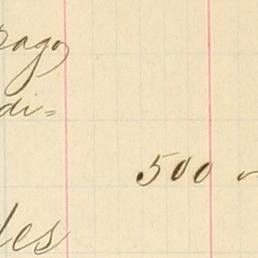 pago
di=
500 -
les